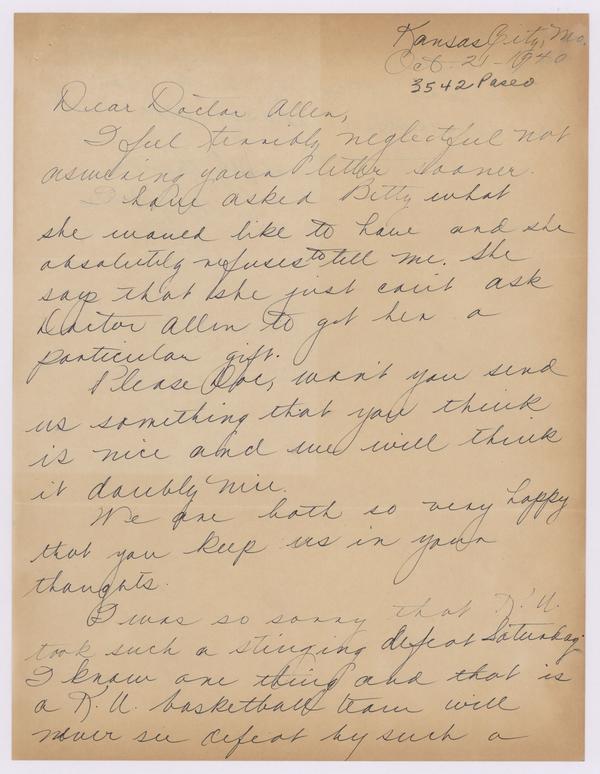 Kansas City, Mo.
Oct. 21-1940
3542 Paseo
Dear Doctor Allen,
I feel terribly neglectful not
answering your letter sooner.
I have asked Bitty what
she would like to have and she
absolutely refuses to tell me. She
says that she just can't ask
Doctor Allen to get her a
particular gift.
Please Doc, won't you send
us something that you think
is nice and we will think
it doubly nice.
We are both so very happy
that you keep us in your
thoughts.
I was so sorry that K.U.
took such a stinging defeat Saturday.
I know one thing and that is
a K.U. basketball team will
never see defeat by such a